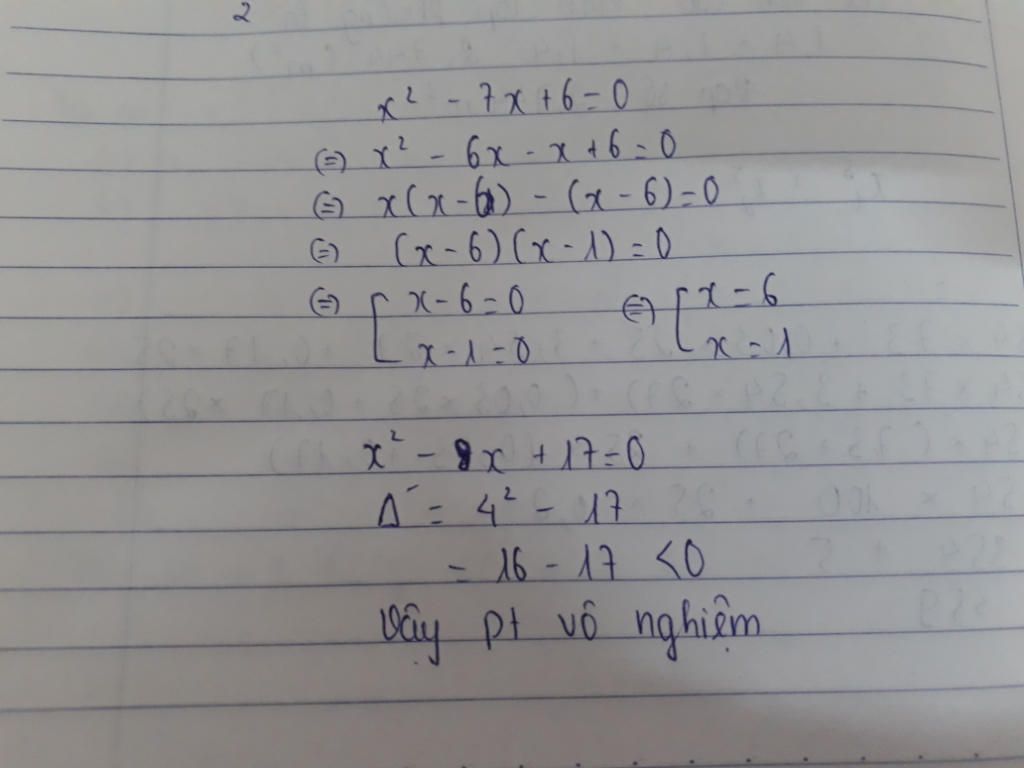 2
x² - 7x + 6 = 0
⇔ x² - 6x - x + 6 = 0
⇔ x(x - 6) - (x - 6) = 0
⇔ (x - 6)(x - 1) = 0
⇔ [ x - 6 = 0 ⇔ [ x = 6
x - 1 = 0 x = 1
x² - 8x + 17 = 0
Δ' = 4² - 17
= 16 - 17 < 0
Vậy pt vô nghiệm